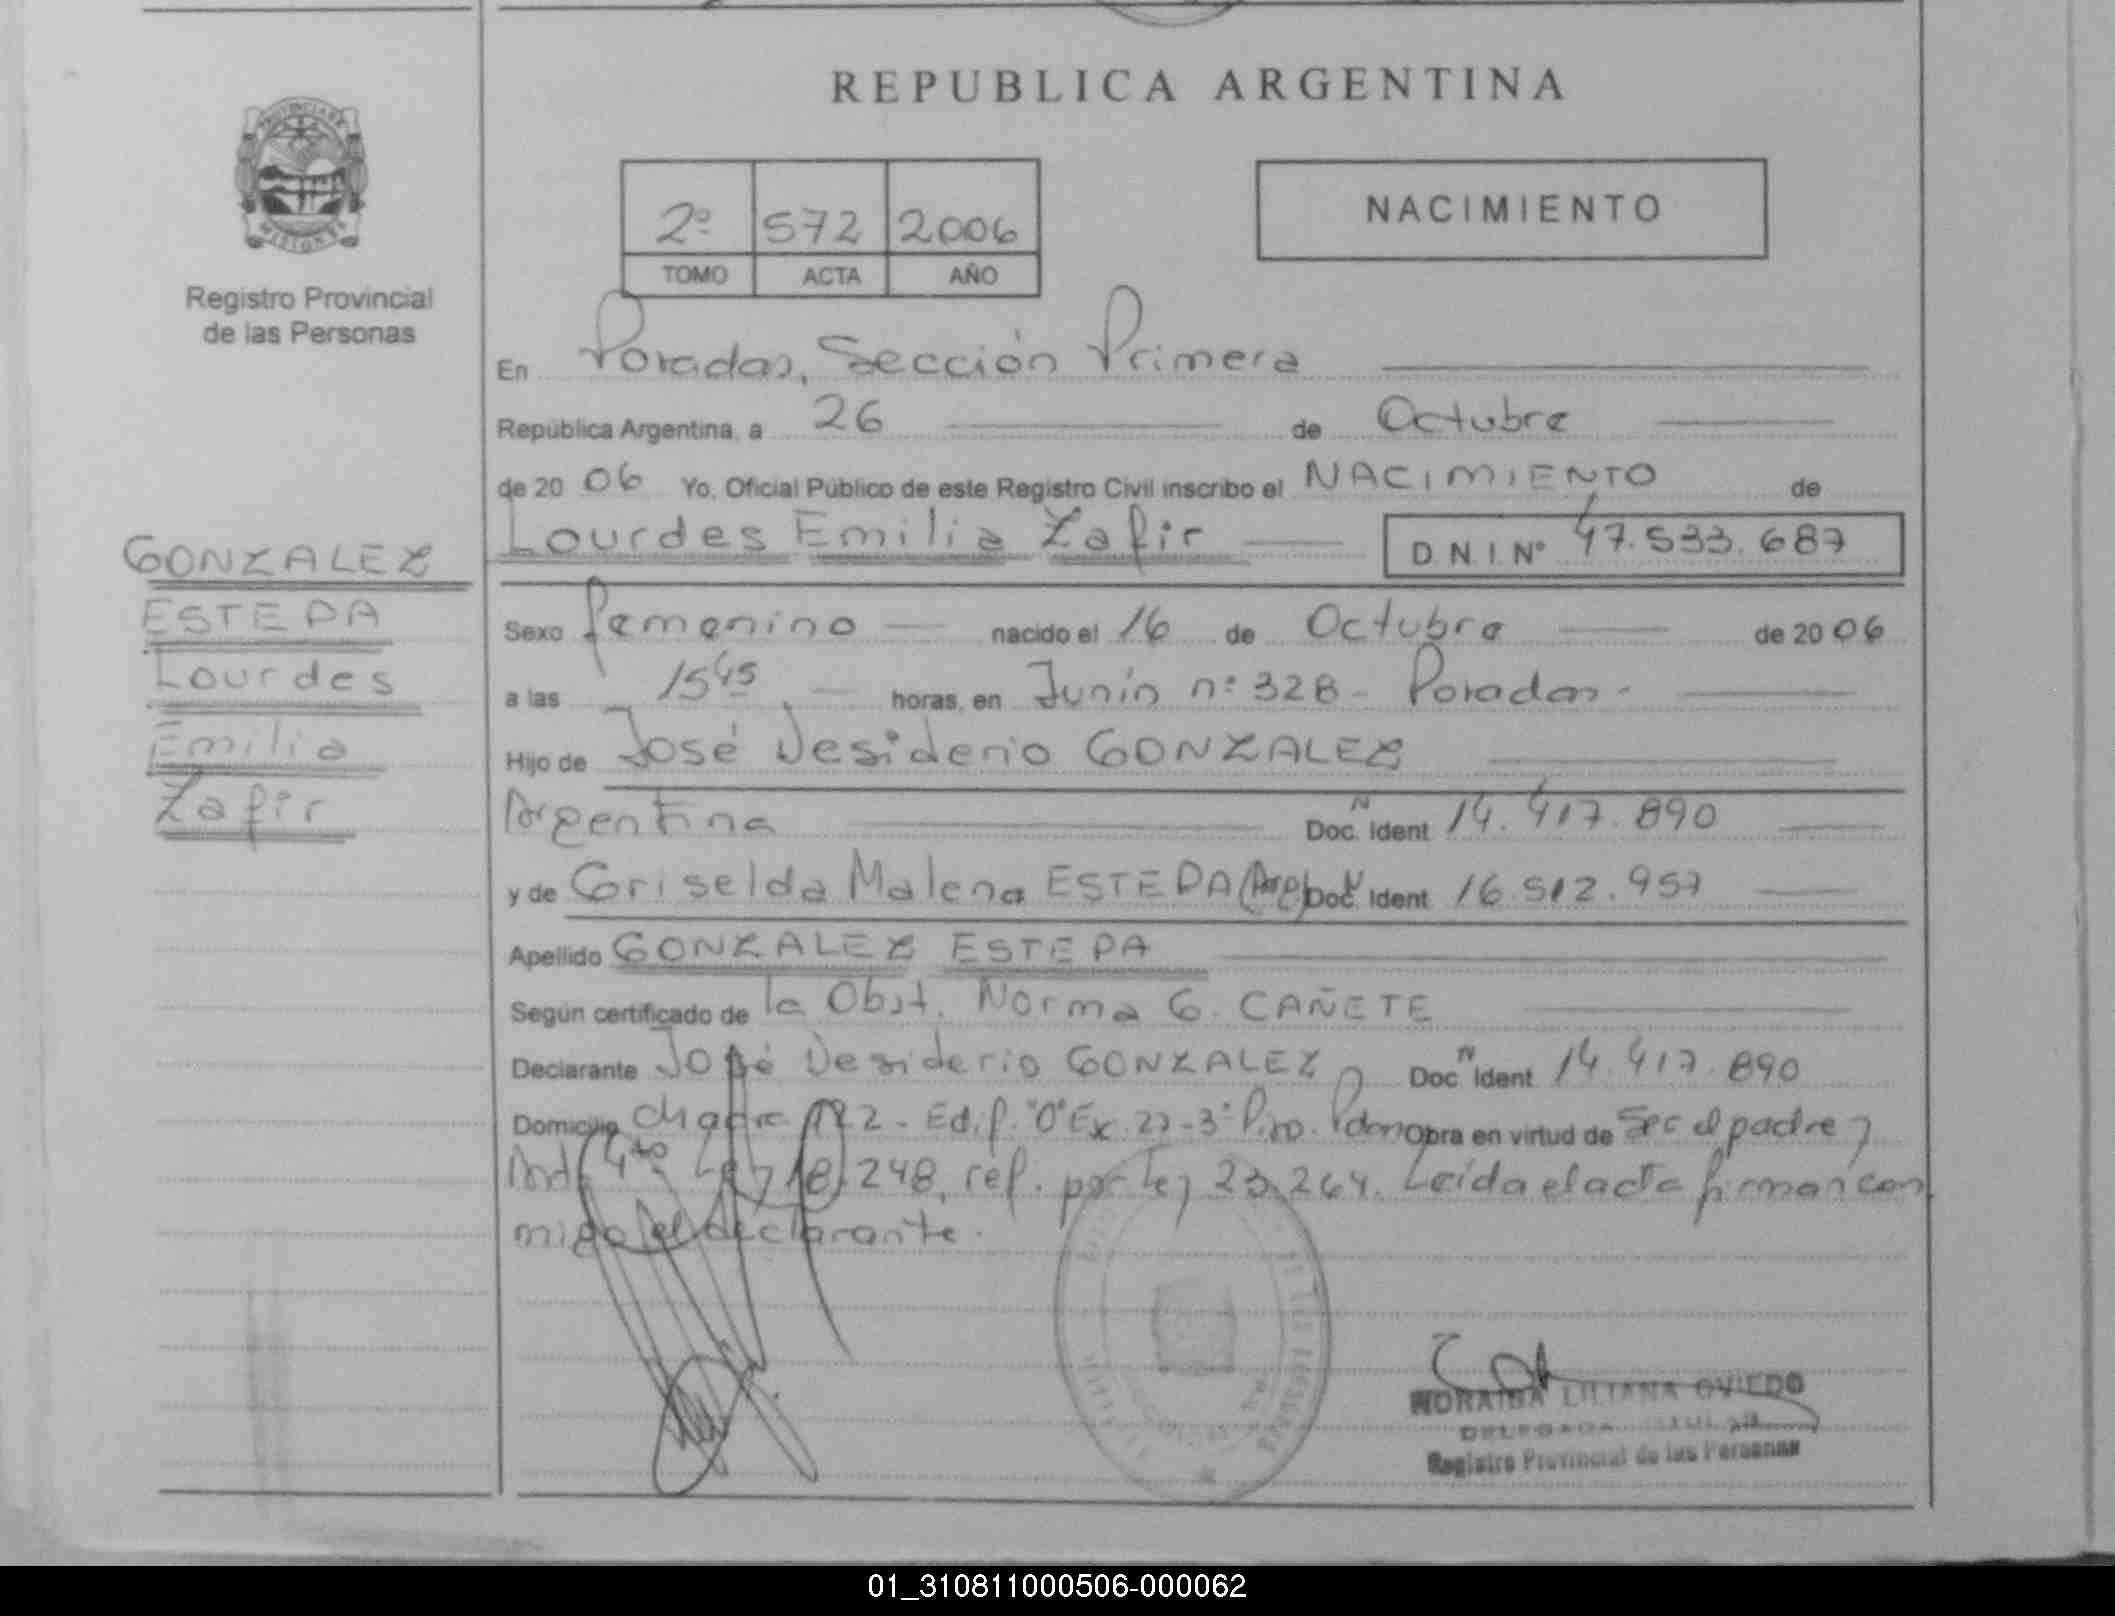 REPUBLICA ARGENTINA
2º 572 2006
TOMO ACTA AÑO
NACIMIENTO
Registro Provincial
de las Personas
GONZALEZ
ESTEPA
Lourdes
Emilia
Zafir
En Posadas, Sección Primera
República Argentina, a 26 de Octubre
de 20 06 Yo, Oficial Público de este Registro Civil inscribo el NACIMIENTO de
Lourdes Emilia Zafir D.N.I. Nº 47.533.687
Sexo femenino nacido el 16 de Octubre de 20 06
a las 15 45 horas, en Junín nº 328 - Posadas -
Hijo de José Desiderio GONZALEZ
Argentina Doc. N Ident 14.417.890
y de Griselda Malena ESTEPA (Arg) Doc. N Ident 16.512.957
Apellido GONZALEZ ESTEPA
Según certificado de la Obst. Norma G. CAÑETE
Declarante José Desiderio GONZALEZ Doc N Ident 14.417.890
Domicilio Edif. "O" 3º Piso. obra en virtud de ser el padre y
4to Ley 18.248, ref. por Ley 23.264. Leída el acta firman con
migo el declarante.
LILIANA OVIEDO
DELEGADA TITULAR
Registro Provincial de las Personas
01_310811000506-000062